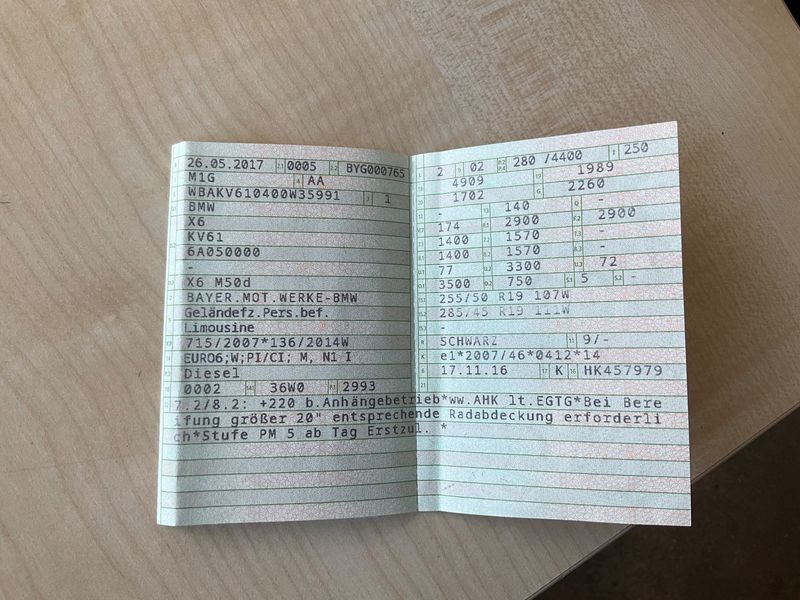 26.05.2017 0005 BYG000765
M1G AA
WBAKV610400W35991 1
BMW
X6
KV61
6A050000
-
X6 M50d
BAYER.MOT.WERKE-BMW
Geländefz.Pers.bef.
Limousine
715/2007*136/2014W
EURO6;W;PI/CI; M, N1 I
Diesel
0002 36W0 2993
2 02 280 /4400 250
4909 1989
1702 2260
- 140 -
174 2900 2900
1400 1570 -
1400 1570 -
77 3300 72
3500 750 5 -
255/50 R19 107W
285/45 R19 111W
-
SCHWARZ 9/-
e1*2007/46*0412*14
17.11.16 K HK457979
7.2/8.2: +220 b.Anhängebetrieb*ww.AHK lt.EGTG*Bei Bere
ifung größer 20" entsprechende Radabdeckung erforderli
ch*Stufe PM 5 ab Tag Erstzul. *